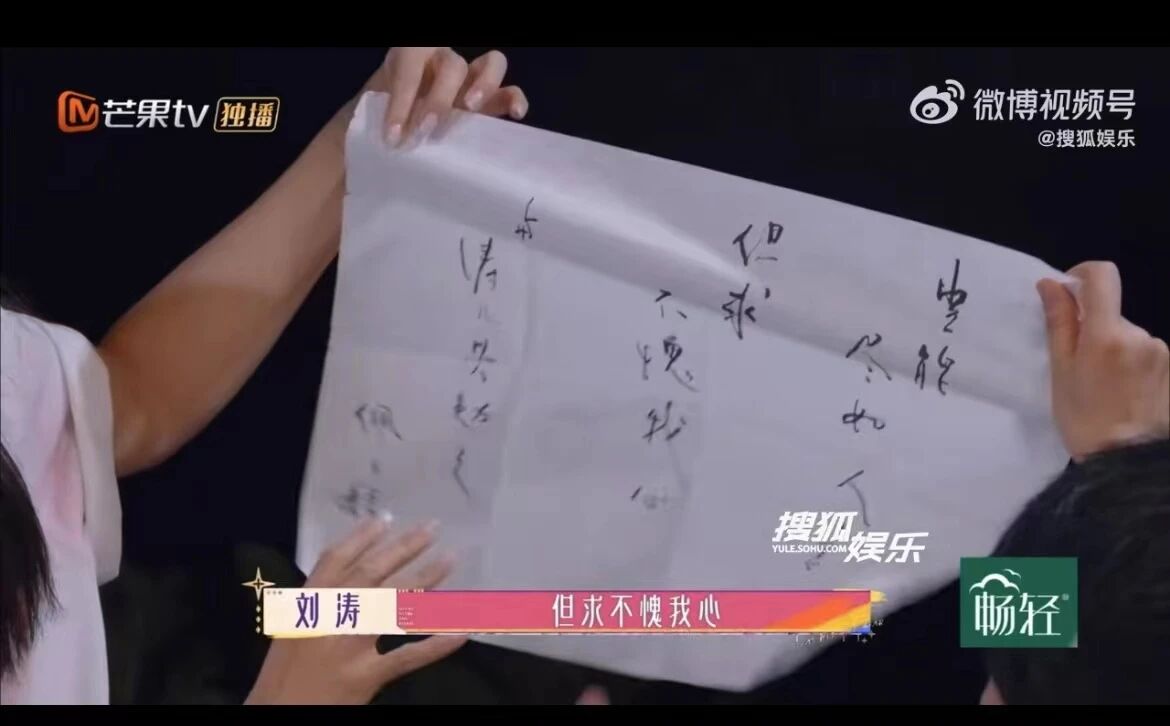 芒果tv 独播
微博视频号
@搜狐娱乐
岂能
尽如人
但求
不愧我心
与
涛儿共勉之
搜狐娱乐
YULE.SOHU.COM
刘涛
但求不愧我心
畅轻